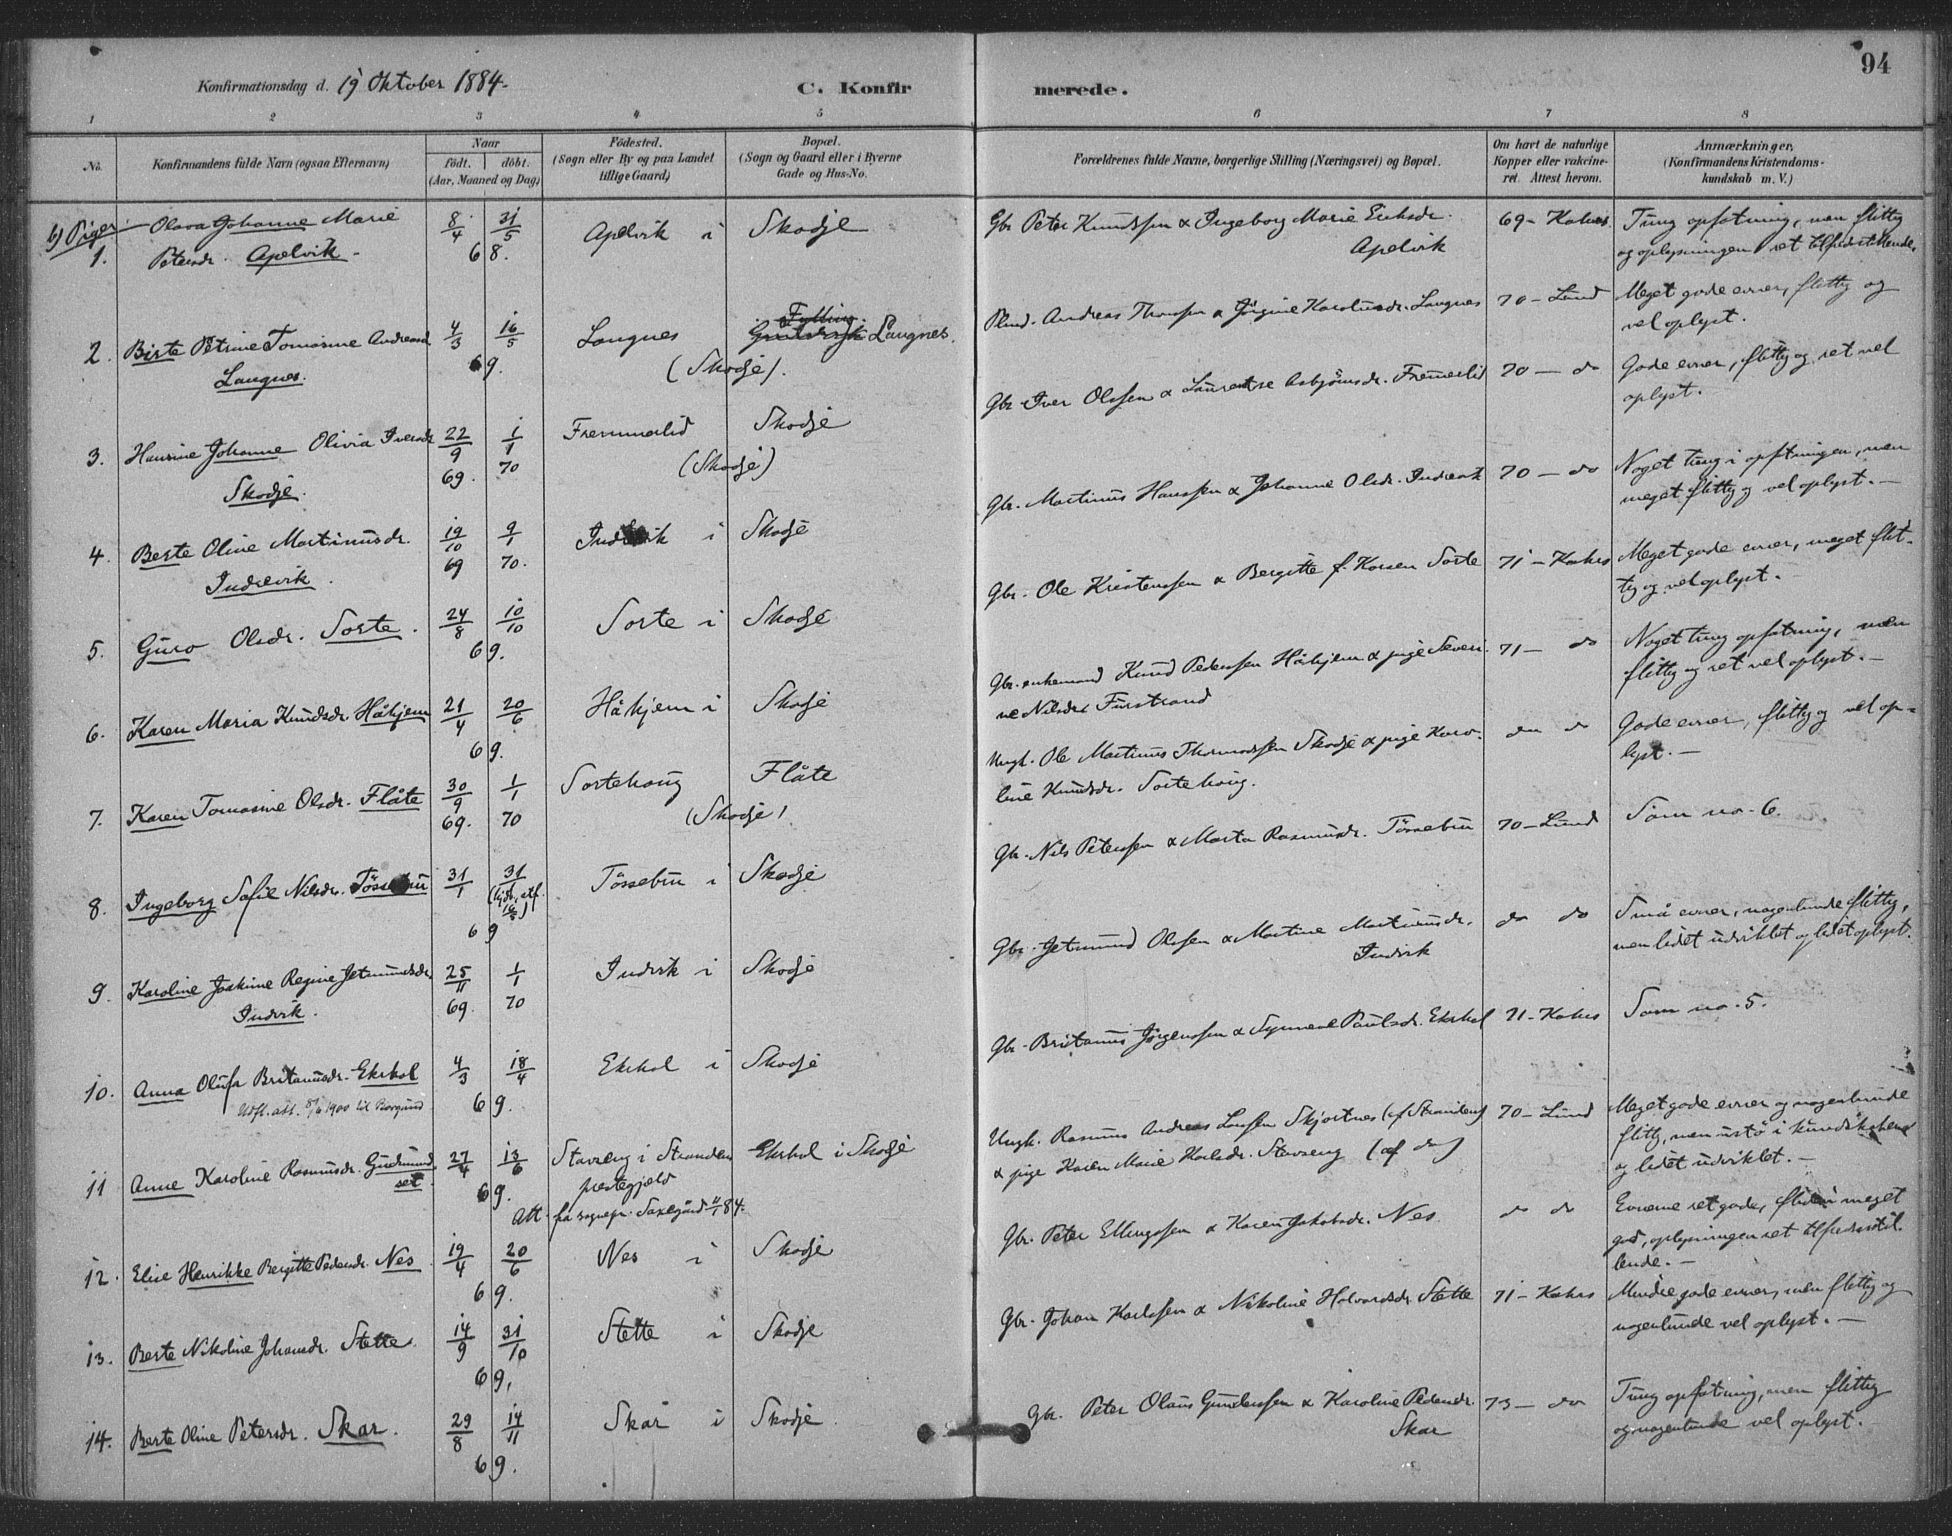 94
Konfirmationsdag d. 19 Oktober 1884.
C. Konfirmerede.
1 2 3 4 5 6 7 8
No. Konfirmandens fulde Navn (ogsaa Efternavn) Naar født. døbt. (Aar, Maaned og Dag) Fødested. (Sogn eller By og paa Landet tillige Gaard) Bopæl. (Sogn og Gaard eller i Byerne Gade og Hus-No. Forældrenes fulde Navne, borgerlige Stilling (Næringsvei) og Bopæl. Om havt de naturlige Kopper eller vakcineret. Attest herom. Anmærkninger, (Konfirmandens Kristendomskundskab m. V.)
b) Piger
1. Olava Johanne Marie Petersdr. Apelvik. 8/4 31/5 68. Apelvik i Skodje Gbr. Peter Knudssen & Ingeborg Marie Eriksdr. Apelvik 69 - Kahrs. Tung opfatning, men flittig og oplysningen ret tilfredsstillende.
2. Birte Petrine Tomasine Andreasd. Langnes. 4/3 16/5 69. Langnes Langnes. (Skodje). Andreas Thomsen & Jørgine Karolusdr. Langnes 70 - Lund Meget gode evner, flittig og vel oplyst.
3. Hansine Johanne Olivia Iversdr. Skodje. 22/9 69. 1/1 70 Fremmerlid Skodje (Skodje) Gbr. Iver Olssen & Laurentse Asbjørnsdr. Fremerlid 70 - do Gode evner, flittig og ret vel oplyst.
4. Berte Oline Martinusdr. Indrevik. 19/10 69 9/1 70. Indrevik i Skodje Gbr. Martinus Hanssen & Johanne Olsdr. Indrevik 70 - do Noget tung i opfatningen, men meget flittig og vel oplyst. -
5. Guro Olsdr. Sorte. 24/8 10/10 69. Sorte i Skodje Gbr. Ole Kristenssen & Bergitte f. Korsen Sorte 71 - Kahrs Meget gode evner, meget flittig og vel oplyst.
6. Karen Maria Knudsdr. Håhjem 21/4 20/6 69. Håhjem i Skodje Gbr. enkemand Knud Pederssen Håhjem & pige Severine Nilsdr. Furstrand 71 - do Noget tung opfatning, men flittig og ret vel oplyst. -
7. Karen Tomasine Olsdr. Flåte 30/9 69. 1/1 70 Sortehoug Flåte (Skodje) Ungk. Ole Martinus Thormodssen Skodje & pige Karoline Knudsdr. Sortehoug. do do Gode evner, flittig og vel oplyst. -
8. Ingeborg Sofie Nilsdr. Tøssebru 31/1 31 69 Tøssebru i Skodje Gbr. Nils Peterssen & Marta Rasmusdr. Tøssebru 70 - Lund Som no. 6.
9. Karoline Joakime Regine Jetmundsdr. Indvik. 25/11 69. 1/1 70 Indvik i Skodje Gbr. Jetmund Olssen & Martine Martinusdr. Indvik do do Små evner, nogenlunde flittig, men lidet udviklet og lidet oplyst.
10. Anna Olufa Britanusdr. Ekrhol 4/3 18/4 69. Ekrhol i Skodje Gbr. Britanus Jørgenssen & Synneve Paulsdr. Ekrhol 71 - Kahrs Som no. 5.
Udfl. att. 8/6 1900 til Borgund
11 Anne Karoline Rasmusdr. Gudmundset. 27/4 13/6 69. Stavseng i Stranden prestegjeld Ekrhol i Skodje Ungk. Rasmus Andreas Larssen Skjortnes (af Stranden) & pige Karen Marie Karlsdr. Stavseng (af do) 70 - Lund Meget gode evner og nogenlunde flittig, men ustø i kundskaberne og lidet udviklet. -
Att. fra sognepr. Saxegård 84.
12. Elise Henrikke Bergitte Pedersdr. Nes 19/4 20/6 69. Nes i Skodje Gbr. Peter Ellingssen & Karen Jakobsdr. Nes do do Evnerne ret gode, fliden meget god, oplysningen ret tilfredsstillende. -
13. Berte Nikoline Johansdr. Stette. 14/9 31/10 69. Stette i Skodje Gbr. Johan Karlssen & Nikoline Halvardsdr. Stette 71 - Kahrs Mindre gode evner, men flittig og nogenlunde vel oplyst. -
14. Berte Oline Petersdr. Skar. 29/8 14/11 69. Skar i Skodje. Gbr. Peter Olaus Gunderssen & Karoline Pedersdr. Skar 73 - do Tung opfatning, men flittig og nogenlunde vel oplyst. -